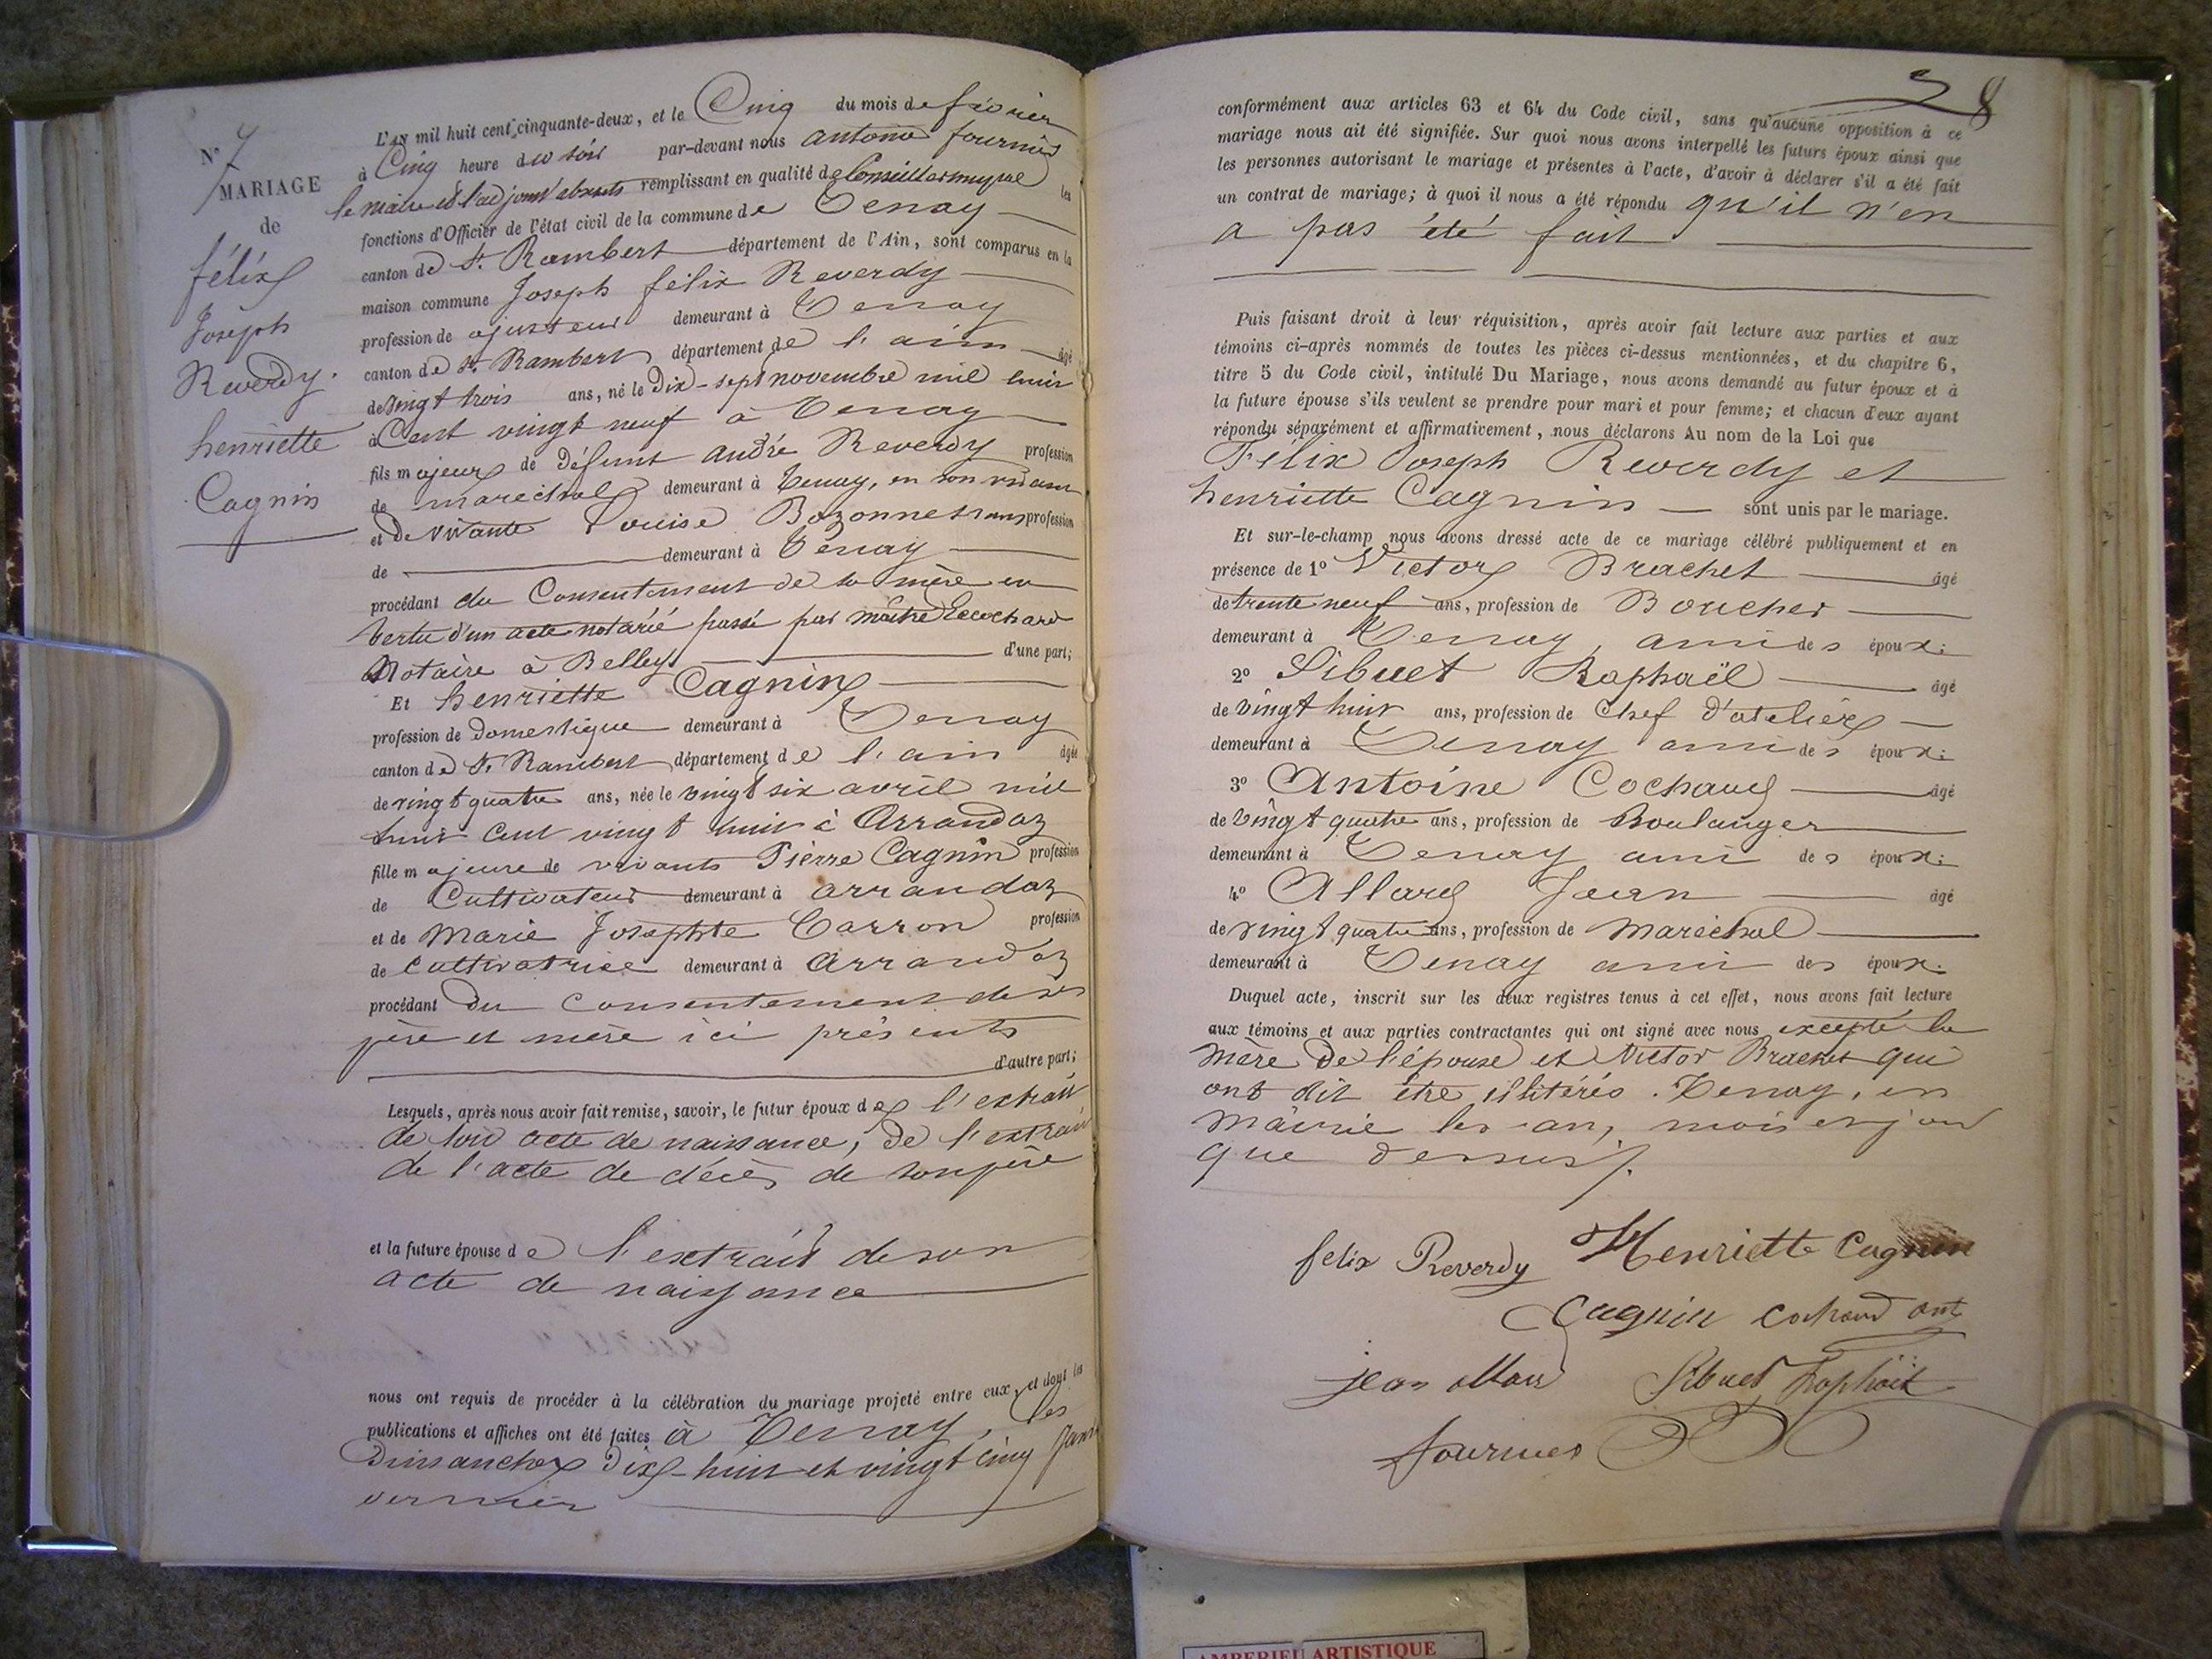 N° 7
MARIAGE
de
félix
Joseph
Reverdy.
henriette
Cagnin
L'an mil huit cent cinquante-deux, et le Cinq du mois de février
à Cinq heure du soir par-devant nous antoine fournier
le maire et l'adjoint absents remplissant en qualité de Conseiller les
fonctions d'Officier de l'état civil de la commune de Tenay
canton de St. Rambert département de l'Ain, sont comparus en la
maison commune Joseph félix Reverdy
profession de ajusteur demeurant à Tenay
canton de St. Rambert département de l'ain âgé
de vingt trois ans, né le Dix-sept novembre mil huit
Cent vingt neuf à Tenay
fils majeur de défunt andré Reverdy profession
de maréchal demeurant à Tenay, en son vivant
et de vivante Louise Bozonnet sans profession
de demeurant à Tenay
procédant du Consentement de sa mère en
vertu d'un acte notarié passé par maitre Ecochard
Notaire à Belley d'une part;
Et henriette Cagnin
profession de Domestique demeurant à Tenay
canton de St. Rambert département de l'ain âgée
de vingt quatre ans, née le vingt six avril mil
huit Cent vingt huit à Arrandaz
fille majeure de vivants Pierre Cagnin profession
de Cultivateur demeurant à arrandaz
et de Marie Josephte Carron profession
de Cultivatrice demeurant à Arrandaz
procédant Du Consentement de ses
père et mère ici présents
d'autre part;
Lesquels, après nous avoir fait remise, savoir, le futur époux de l'extrait
de son acte de naissance, De l'extrait
de l'acte de décès de son père
et la future épouse de l'extrait de son
acte de naissance
nous ont requis de procéder à la célébration du mariage projeté entre eux, et dont les
publications et affiches ont été faites à Tenay, les
Dimanches Dix-huit et vingt cinq Janv
dernier
38
conformément aux articles 63 et 64 du Code civil, sans qu'aucune opposition à ce
mariage nous ait été signifiée. Sur quoi nous avons interpellé les futurs époux ainsi que
les personnes autorisant le mariage et présentes à l'acte, d'avoir à déclarer s'il a été fait
un contrat de mariage; à quoi il nous a été répondu qu'il n'en
a pas été fait
Puis faisant droit à leur réquisition, après avoir fait lecture aux parties et aux
témoins ci-après nommés de toutes les pièces ci-dessus mentionnées, et du chapitre 6,
titre 5 du Code civil, intitulé Du Mariage, nous avons demandé au futur époux et à
la future épouse s'ils veulent se prendre pour mari et pour femme; et chacun d'eux ayant
répondu séparément et affirmativement, nous déclarons Au nom de la Loi que
Félix Joseph Reverdy et
henriette Cagnin sont unis par le mariage.
Et sur-le-champ nous avons dressé acte de ce mariage célébré publiquement et en
présence de 1° Victor Brachet âgé
de trente neuf ans, profession de Boucher
demeurant à Tenay, ami des époux:
2° Sibuet Raphaël âgé
de vingt huit ans, profession de Chef d'atelier
demeurant à Tenay ami des époux:
3° Antoine Cochaud âgé
de vingt quatre ans, profession de Boulanger
demeurant à Tenay ami des époux:
4° Allard Jean âgé
de vingt quatre ans, profession de Maréchal
demeurant à Tenay ami des époux.
Duquel acte, inscrit sur les deux registres tenus à cet effet, nous avons fait lecture
aux témoins et aux parties contractantes qui ont signé avec nous excepté la
mère de l'épouse et Victor Brachet qui
ont dit être illitérés. Tenay, en
Mairie les an, mois et jour
que dessus.
felix Reverdy Henriette Cagnin
Cagnin Cochaud ant
jean allard Sibuet Raphaël
fournier
AMBERIEU ARTISTIQUE